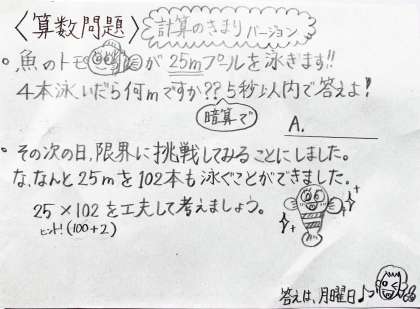 〈算数問題〉 計算のきまりバージョン
。魚のトモ が25mプールを泳ぎます!!
4本泳いだら何mですか??5秒以内で答えよ!
暗算で
A.
。その次の日、限界に挑戦してみることにしました。
な、なんと25mを102本も泳ぐことができました。
25×102を工夫して考えましょう。
ヒント!(100+2)
答えは、月曜日♪